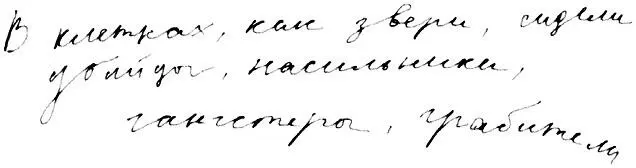 В клетках, как звери, сидели
убийцы, насильники,
гангстеры, грабители